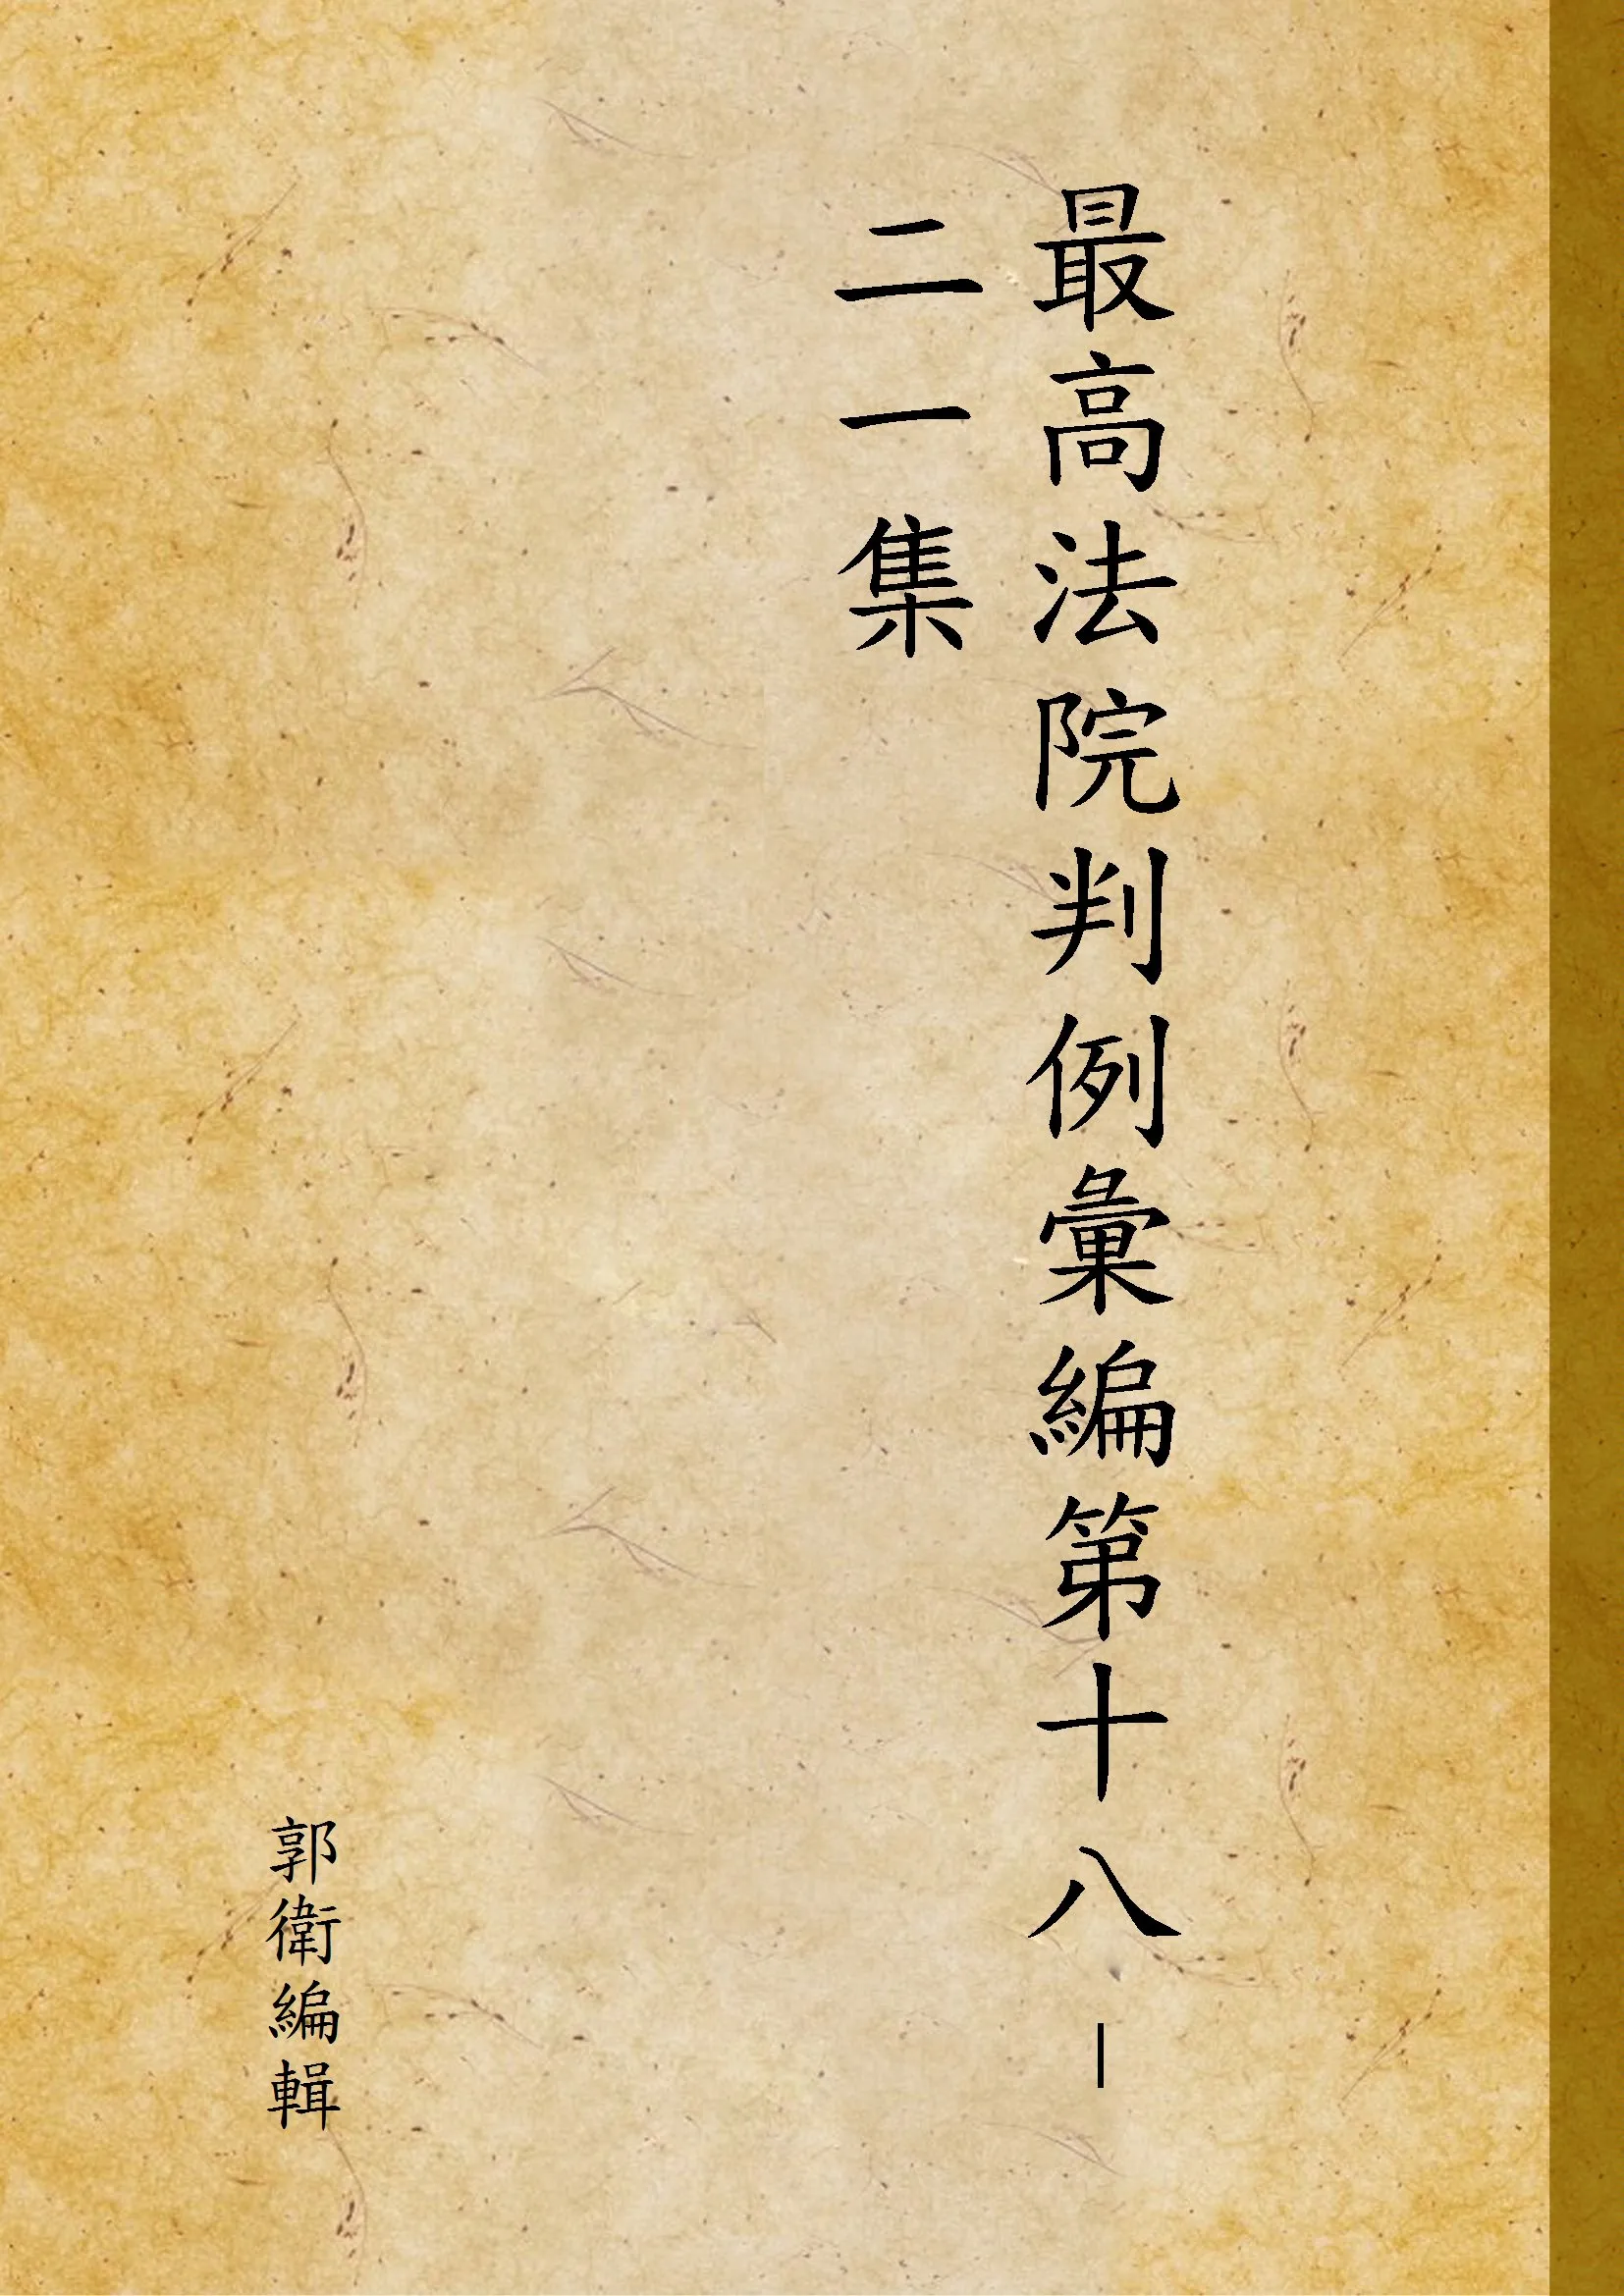 最高法院判例彙編第十八-
二一集
郭衛編輯